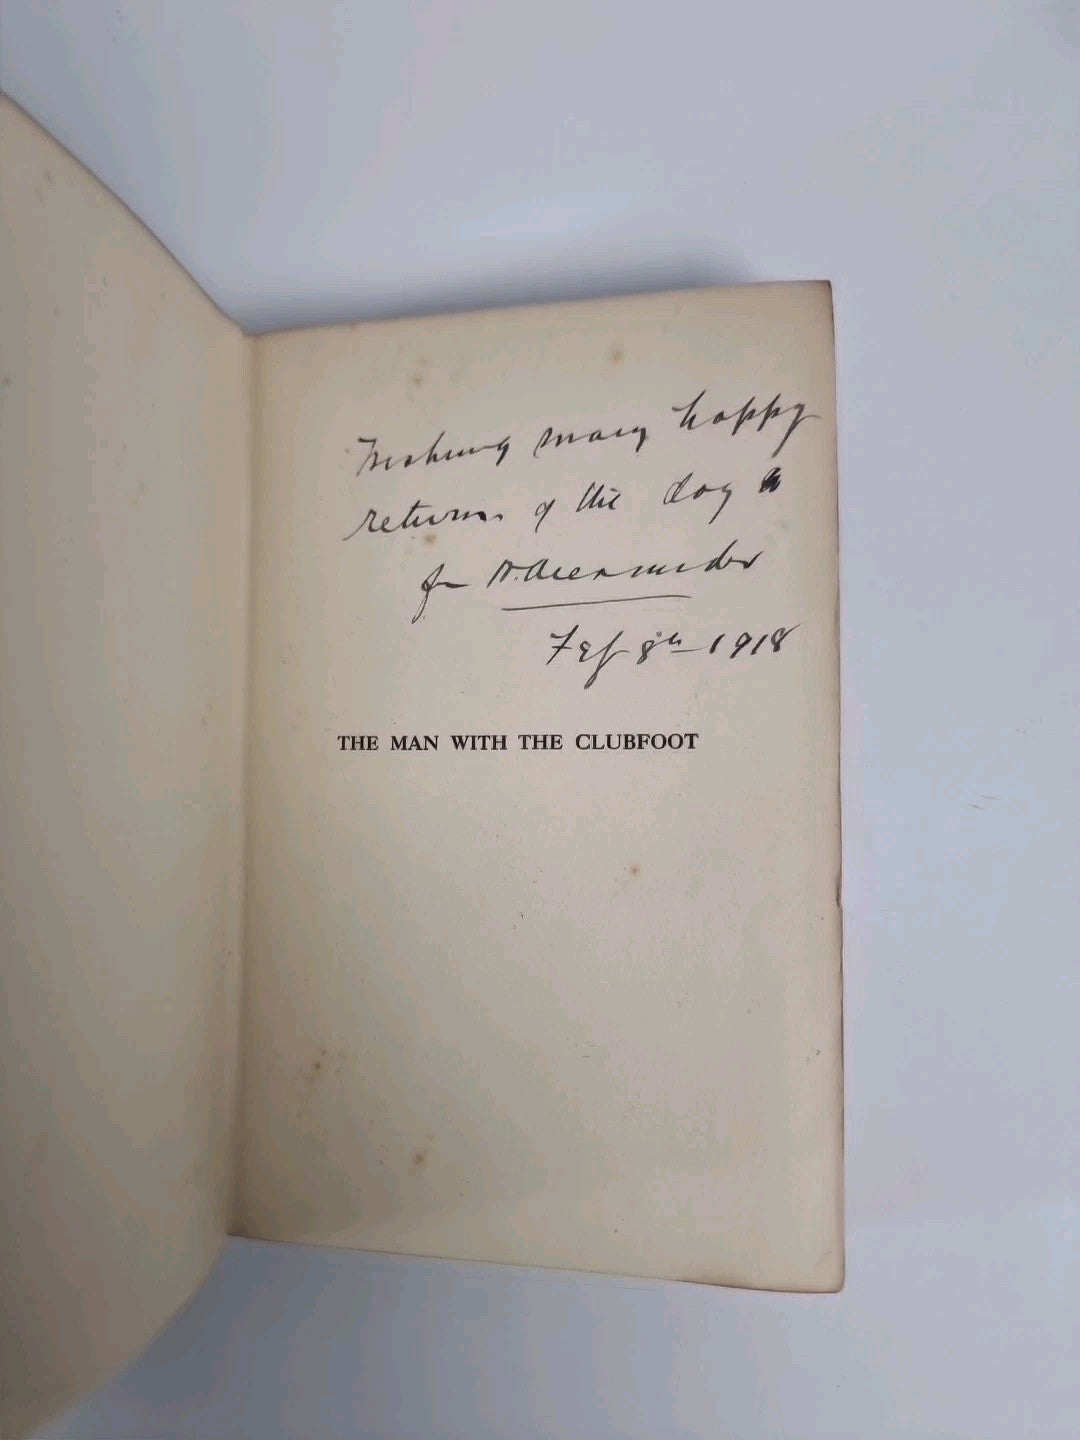 Wishing many happy
returns of the day
Alexander
Feb 8th 1918
THE MAN WITH THE CLUBFOOT